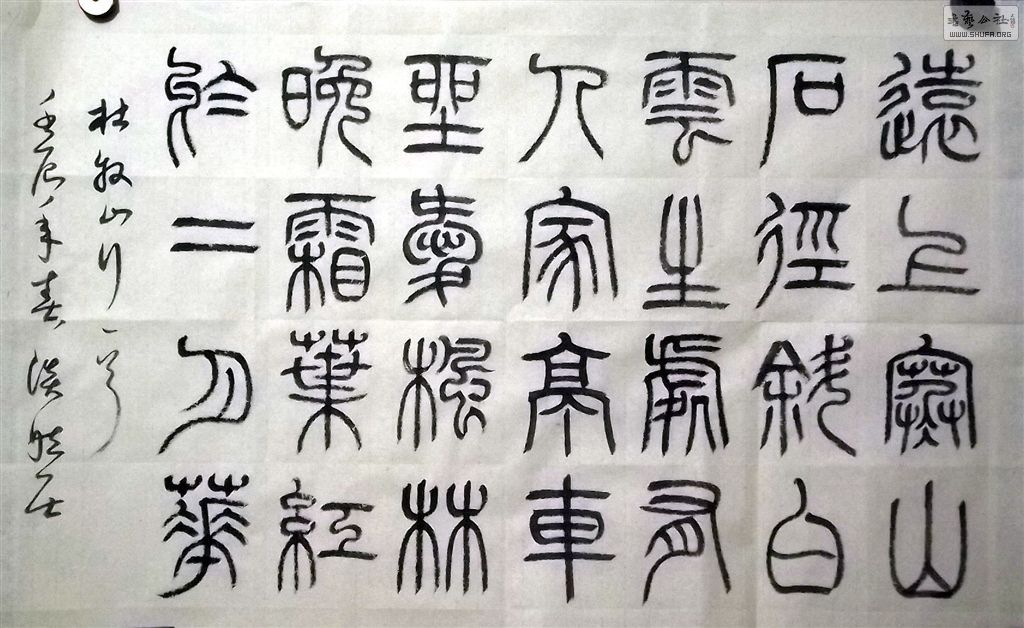 遠上寒山
石徑斜白
雲生處有
人家亭車
坐愛楓林
晚霜葉紅
於二月華
杜牧山行一首
壬辰年春
書藝公社
WWW.SHUFA.ORG